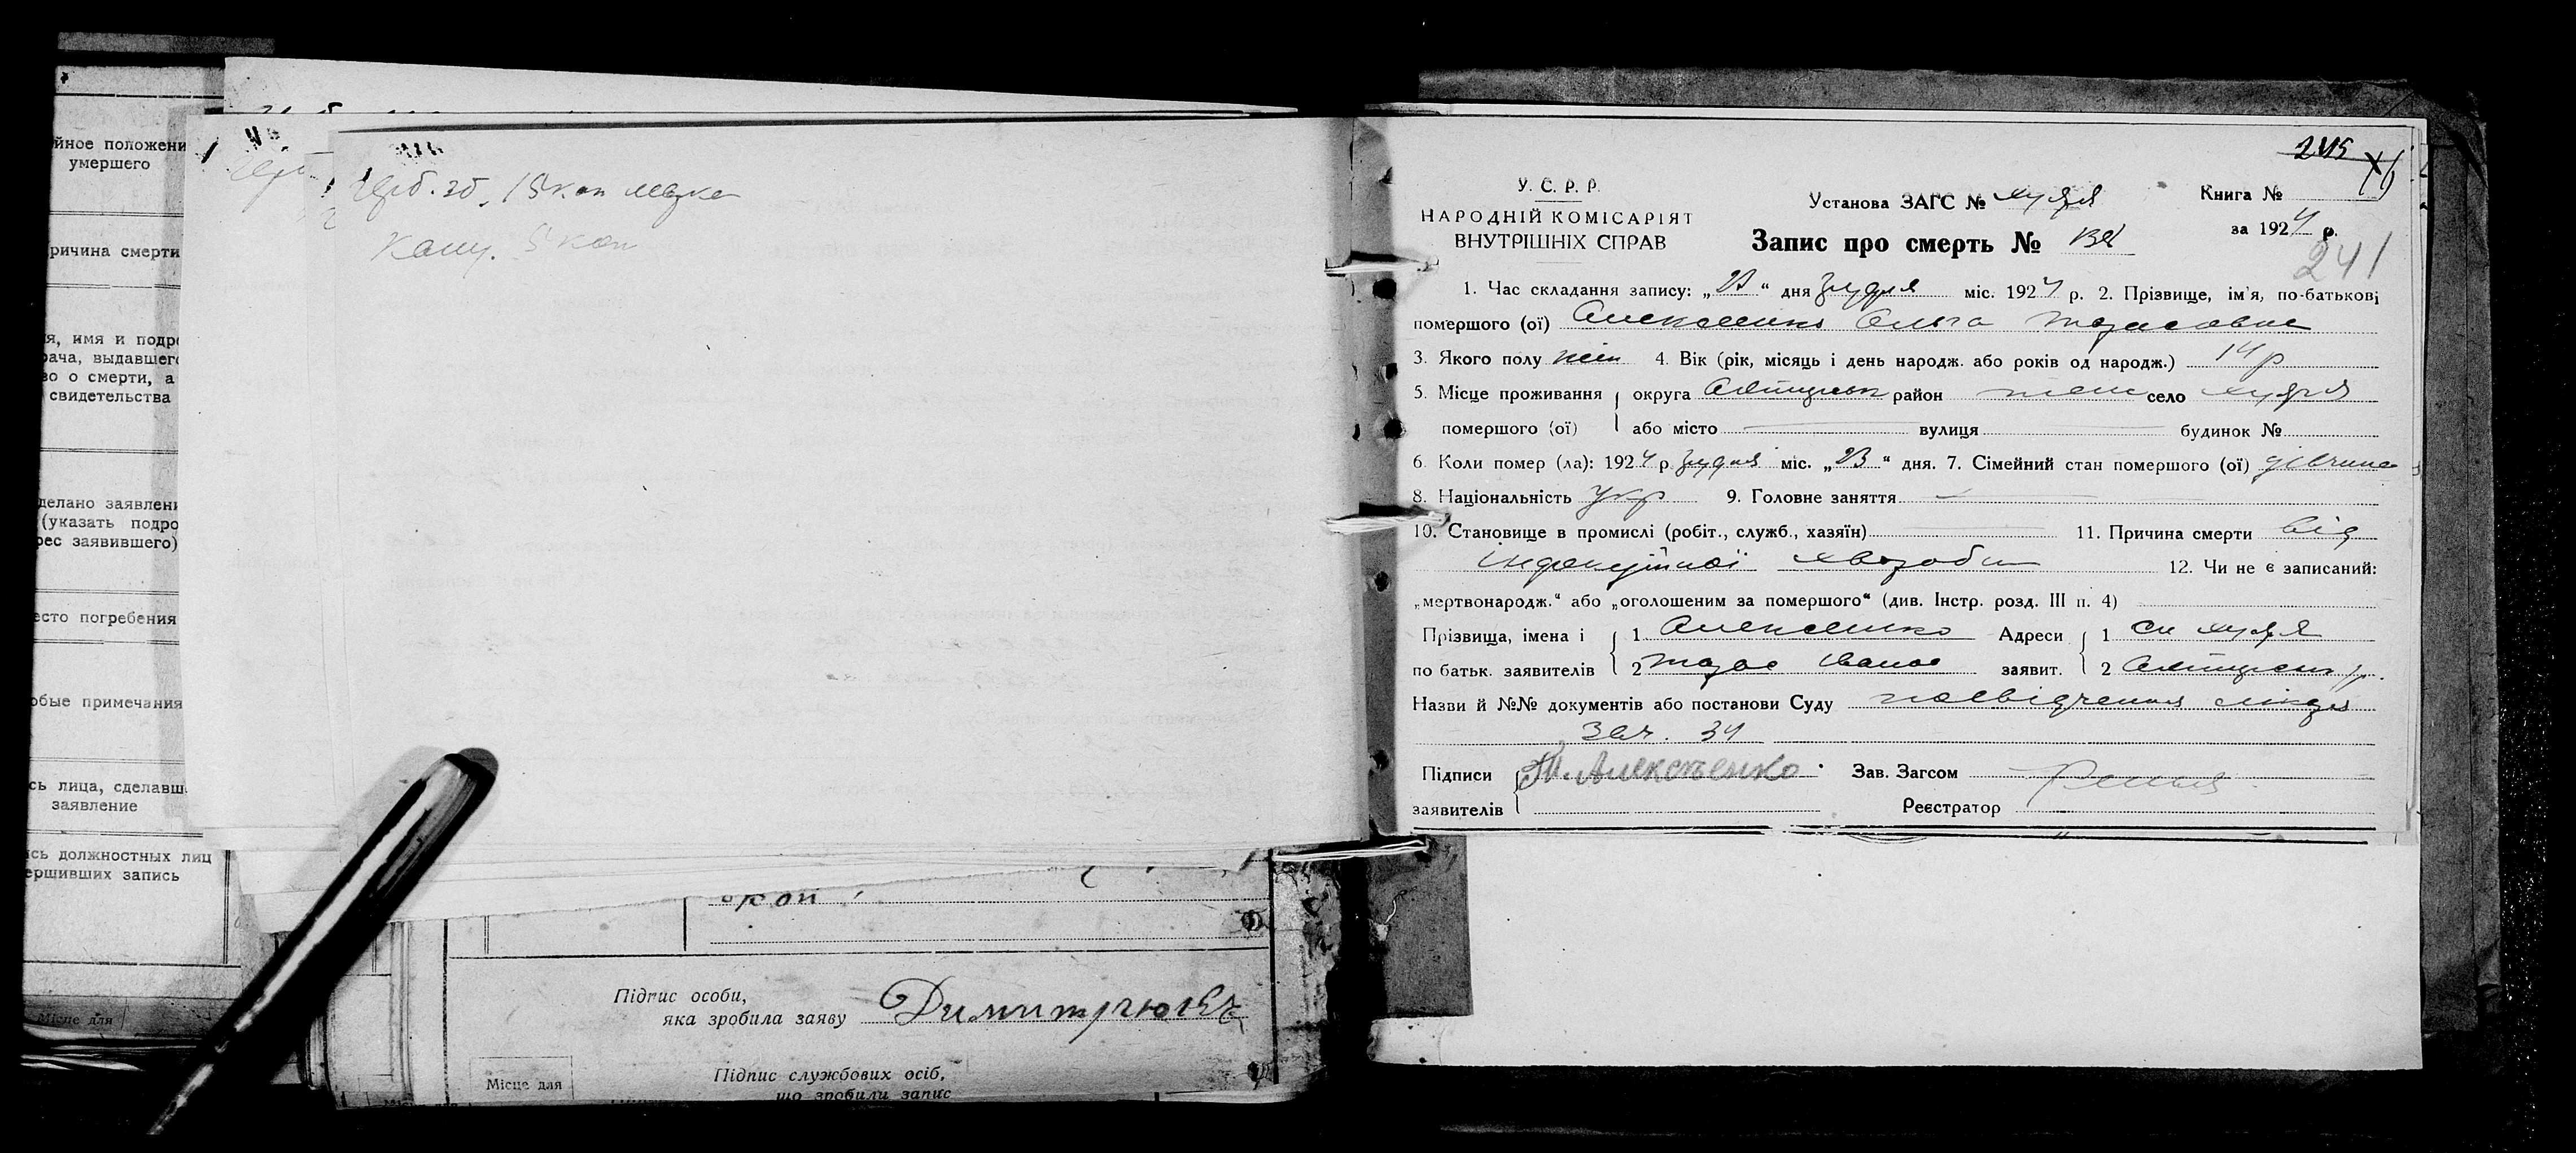 йное положени
умершего
ричина смерти
я, имя и подро
рача, выдавшего
во о смерти, а
свидетельства
делано заявлени
(указать подро
рес заявившего)
есто погребения
обые примечания
сь лица, сделавш
заявление
сь должностных лиц
ершивших запись
Місце для
Герб. зб. 15 коп марка
Канц. 5 коп
коп
Підпис особи,
яка зробила заяву
Підпис службових осіб,
що зробили запис
Місце для
245
У. С. Р. Р.
НАРОДНІЙ КОМІСАРІЯТ
ВНУТРІШНІХ СПРАВ
Установа ЗАГС № Худя
Книга №
Запис про смерть №
за 1924 р.
241
1. Час складання запису: „ “ дня грудня міс. 1924 р. 2. Прізвище, ім'я, по-батькові
помершого (ої) Алексеєнко Ольга Тарасовна
3. Якого полу жін 4. Вік (рік, місяць і день народж. або років од народж.) 14 р
5. Місце проживання округа район село Худя
помершого (ої) або місто вулиця будинок №
6. Коли помер (ла): 1924 р грудня міс. „ “ дня. 7. Сімейний стан помершого (ої) дівчина
8. Національність укр 9. Головне заняття
10. Становище в промислі (робіт., служб., хазяїн) 11. Причина смерти від
хвороби 12. Чи не є записаний:
„мертвонародж.“ або „оголошеним за помершого“ (див. Інстр. розд. III п. 4)
Прізвища, імена і 1 Алексеєнко Адреси 1 Худя
по батьк. заявителів 2 Тарас Іванов заявит. 2
Назви й №№ документів або постанови Суду посвідчення лікаря
34
Підписи Т. Алексѣенко Зав. Загсом
заявителів Реєстратор